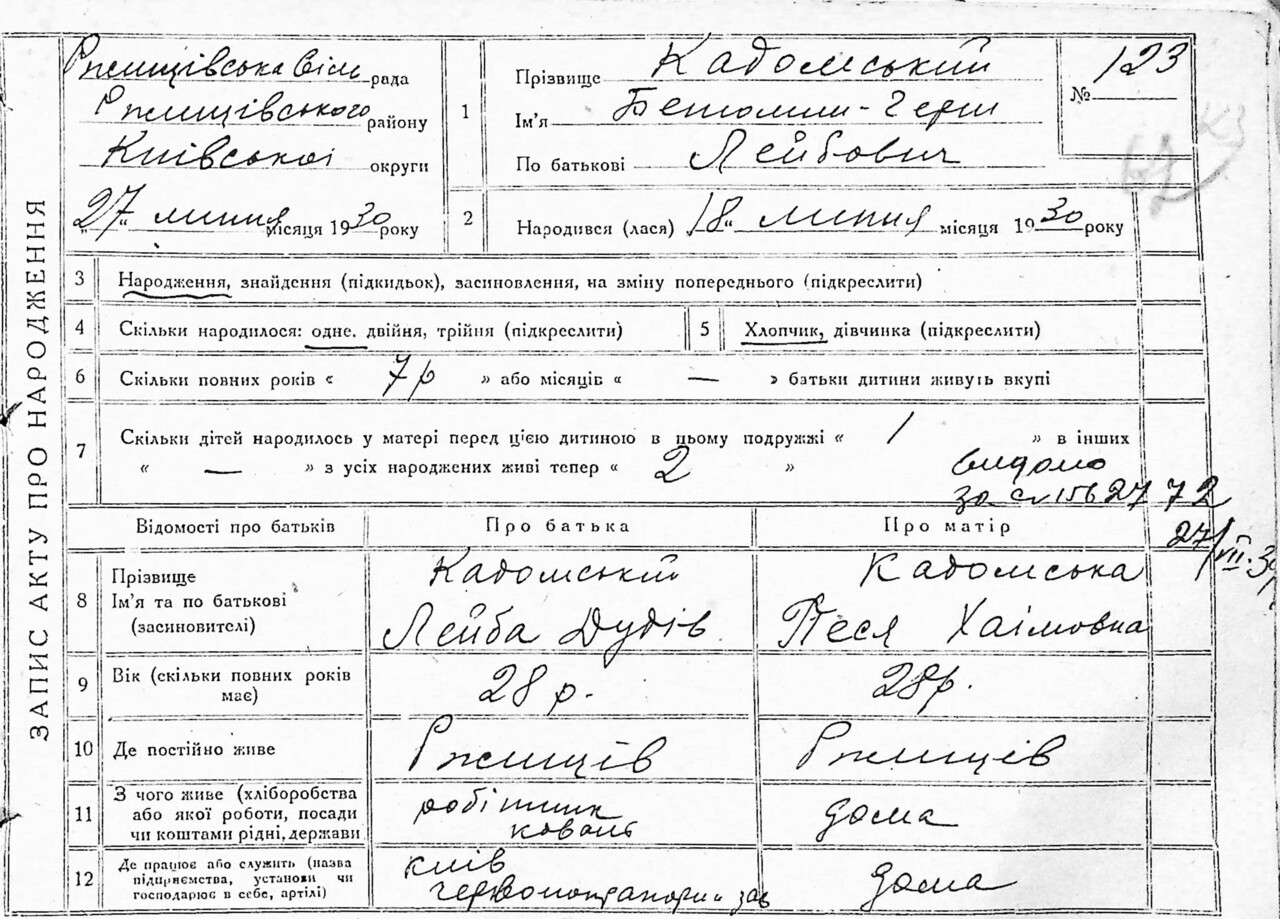 ЗАПИС АКТУ ПРО НАРОДЖЕННЯ
Ржищівська рада
Ржищівського району
Київської округи
"27" липня місяця 1930 року
1
Прізвище Кадомський
Ім'я Герш
По батькові Лейбович
№ 123
2
Народився (лася) "18" липня місяця 1930 року
3 Народження, знайдення (підкидьок), засиновлення, на зміну попереднього (підкреслити)
4 Скільки народилося: одне. двійня, трійня (підкреслити)
5 Хлопчик, дівчинка (підкреслити)
6 Скільки повних років « 7 р » або місяців « — » батьки дитини живуть вкупі
7 Скільки дітей народилось у матері перед цією дитиною в цьому подружжі « 1 » в інших
« — » з усіх народжених живі тепер « 2 »
видано
за 27 72
27/VII.30
Відомості про батьків Про батька Про матір
8 Прізвище
Ім'я та по батькові
(засиновителі)
Кадомський
Лейба Дудів
Кадомська
Песя Хаімовна
9 Вік (скільки повних років
має)
28 р.
28 р.
10 Де постійно живе Ржищів Ржищів
11 З чого живе (хліборобства
або якої роботи, посади
чи коштами рідні, держави
робітник
коваль
дома
12 Де працює або служить (назва
підприємства, установи чи
господарює в себе, артілі)
Київ
зав
дома